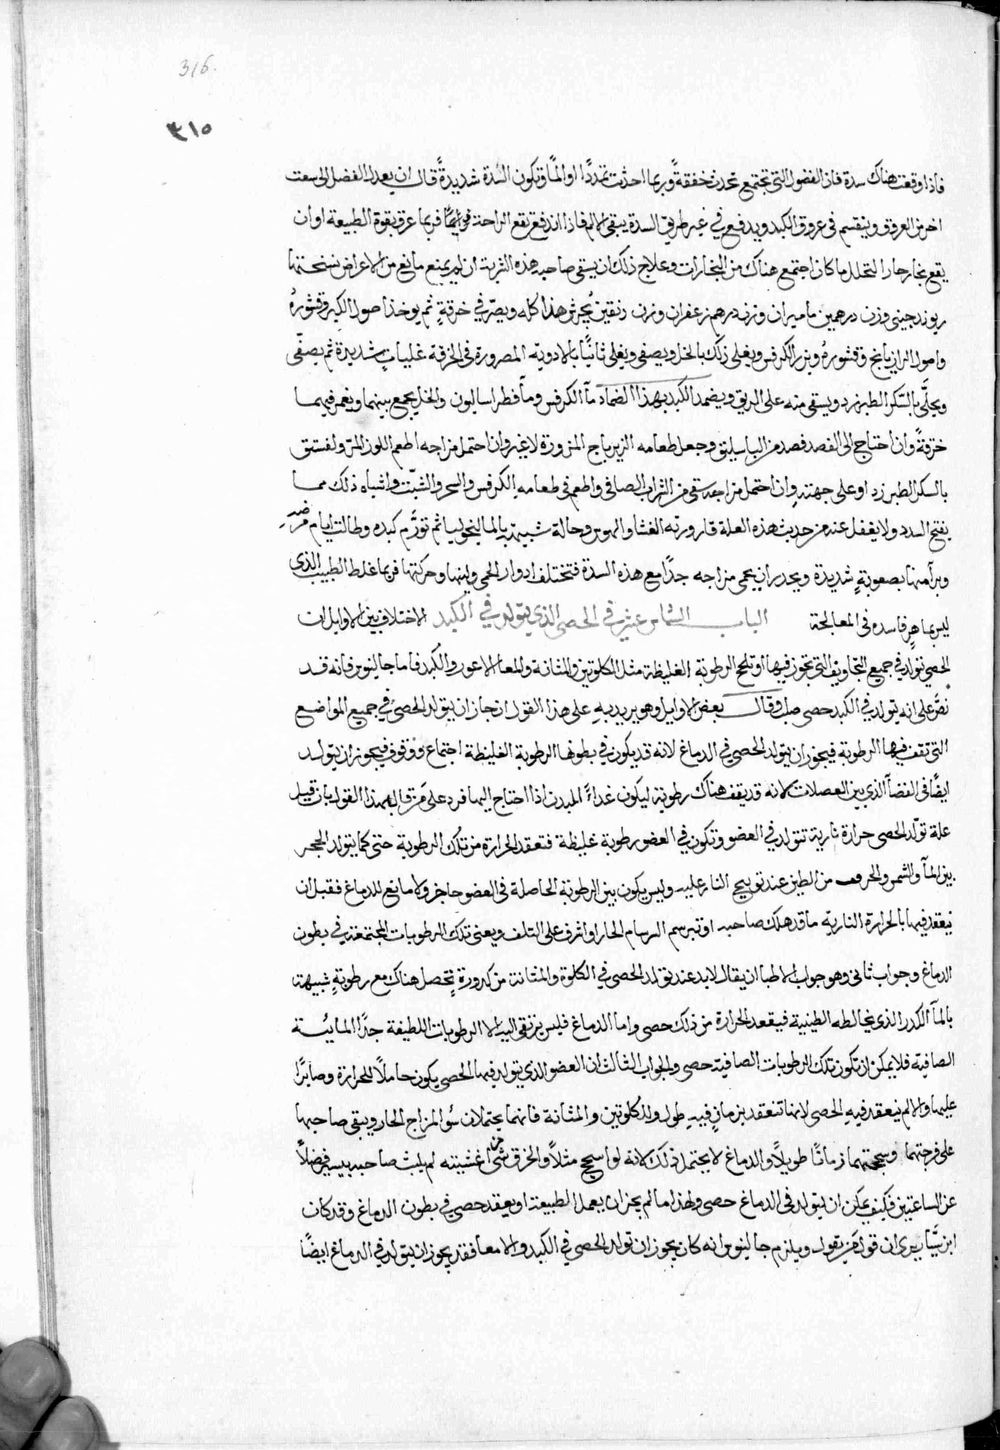 316.
٣١٥
فاذا وقعت هناك سدة فاذ الفضول التي تجتمع تحدث خفقةً وربما احدثت تمددًا او الماً وتكون السدة شديدةً قال ان يعدل الفضل الى سعت
اخر من العروق وينقسم في عروق الكبد ويدفع في غير طريق السدة يبقى الالم فاذا اندفع تقع الراحة فربما عرق بقوة الطبيعة او ان
يقع بخار حار التحلل ما كان اجتمع هناك من البخارات وعلاج ذلك ان يسقى صاحبه هذه الشربة ان لم يمنع مانع من الاعراض نسختها
ريوند جيني وزن درهمين ماميران وزن درهم زعفران وزن دنقين يُجرش هذا كله ويصرّ في خرقةٍ ثم يوخذ اصول الكبر وقشورهُ
واصول الرازيانج وقشورهُ وبزر الكرفس ويغلى ذلك بالخل ويصفى ويغلى ثانيًا بالادوية المصرورة في الخرقة غليات شديدة ثم يصفّى
ويحلّى بالسّكر الطبرزد ويسقى منه على الريق ويضمد الكبد بهذا الضماد مآ الكرفس ومآ فطراساليون والخل يجمع بينهما ويغمر فيهما
خرقةً وان احتاج الى الفصد فصد من الباسليق وجعل طعامه الزيرباج المزورة لا غير وان احتمل مزاجه اطعم اللوز المرّ ولفستق
بالسكر الطبرزد او على جهته وان احتمل مزاجه سقي من الشراب الصافي واطعم في طعامه الكرفس والشبّت واشباه ذلك مما
يفتح السدد ولا يغفل عنه فمن حديث هذه العلة قارورته الغشاوة وحالة شبيهة بالماليخوليا ثم تورّم كبده وطالت ايام مرضه
وبرأ منها بصعوبةٍ شديدة ويحدر ان يحمى مزاجه جدًا مع هذه السدّة فتختلف ادوار الحمى ولينها وحركتها فربما غلط الطبيب الذي
ليس بماهرٍ فاسده في المعالجة الباب الثامن عشر في الحصى الذي يتولد في الكبد الاختلاف بين الاوايل ان
الحصى تولد في جميع التجاويف التي تجوز فيها او تلحج الرطوبة الغليظة مثل الكلوتين والمثانة والمعا الاعور والكبد فاما جالينوس فانه قد
نصّ على انه يتولد في الكبد حصى صلب وقال بعض الاوايل وهو يريد به على هذا القول ان جاز ان يتولد الحصى في جميع المواضع
التي تقف فيها الرطوبة فيجوز ان يتولد الحصى في الدماغ لانه قد يكون في بطونه الرطوبة الغليظة اجتماع ووقوف فيجوز ان يتولد
ايضًا في الفضآ الذي بين العضلات لانه قد يقف هناك رطوبة ليكون غداءً للبدن اذا احتاج اليها فرد على من قال بهذا القول بان قيل
علة تولّد الحصى حرارة نارية تتولد في العضو وتكون في العضو رطوبة غليظة فتعقد الحرارة من تلك الرطوبة حتى كما يتولد الحجر
بين المآ والشمس والخزف من الطين عند توهيج النار عليه وليس يكون بين الرطوبة الحاصلة في العضو حاجز ولا مانع للدماغ فقبل ان
ينعقد فيها بالحرارة النارية ما قد هلك صاحبه او تبرسم البرسام الحار واشرف على التلف ويعنى تلك الرطوبات المجتمعة في بطون
الدماغ وجواب ثاني وهو جواب الاطبا ان يقال لابد عند تولد الحصى في الكلوة والمثانة من كدورةٍ تحصل هناك مع رطوبةٍ شبيهة
بالمآ الكدر الذي يخالطه الطينية فيقعد الحرارة من ذلك حصى واما الدماغ فليس يرتقى اليه الا الرطوبات اللطيفة جدًا المائيّة
الصافية فلا يمكن ان تكون تلك الرطوبات الصافية حصى والجواب الثالث ان العضو الذي يتولد فيه الحصى يكون حاملًا للحرارة وصابرًا
عليها والا لم ينعقد فيهِ الحصى لانها تنعقد بزمانٍ فيه طول والكلوتين والمثانة فانهما يحتملان سُو المزاج الحار ويبقى صاحبها
على قرحتهما وسحجتهما زمانًا طويلًا والدماغ لا يحتمل ذلك لانه لو انسحج مثلًا والخرق شئ من اغشيته لم يلبث صاحبه يسير فضلًا
عن الساعتين فكيف يمكن ان يتولد في الدماغ حصى ولهذا ما لم يجز ان يعمل الطبيعة او يعقد حصى في بطون الدماغ وقد كان
ابن سيّار يرى ان قول من يقول ويلزم جالينوس انه كان يجوز ان تولد الحصى في الكبد والامعا فقد يجوز ان يتولد في الدماغ ايضًا